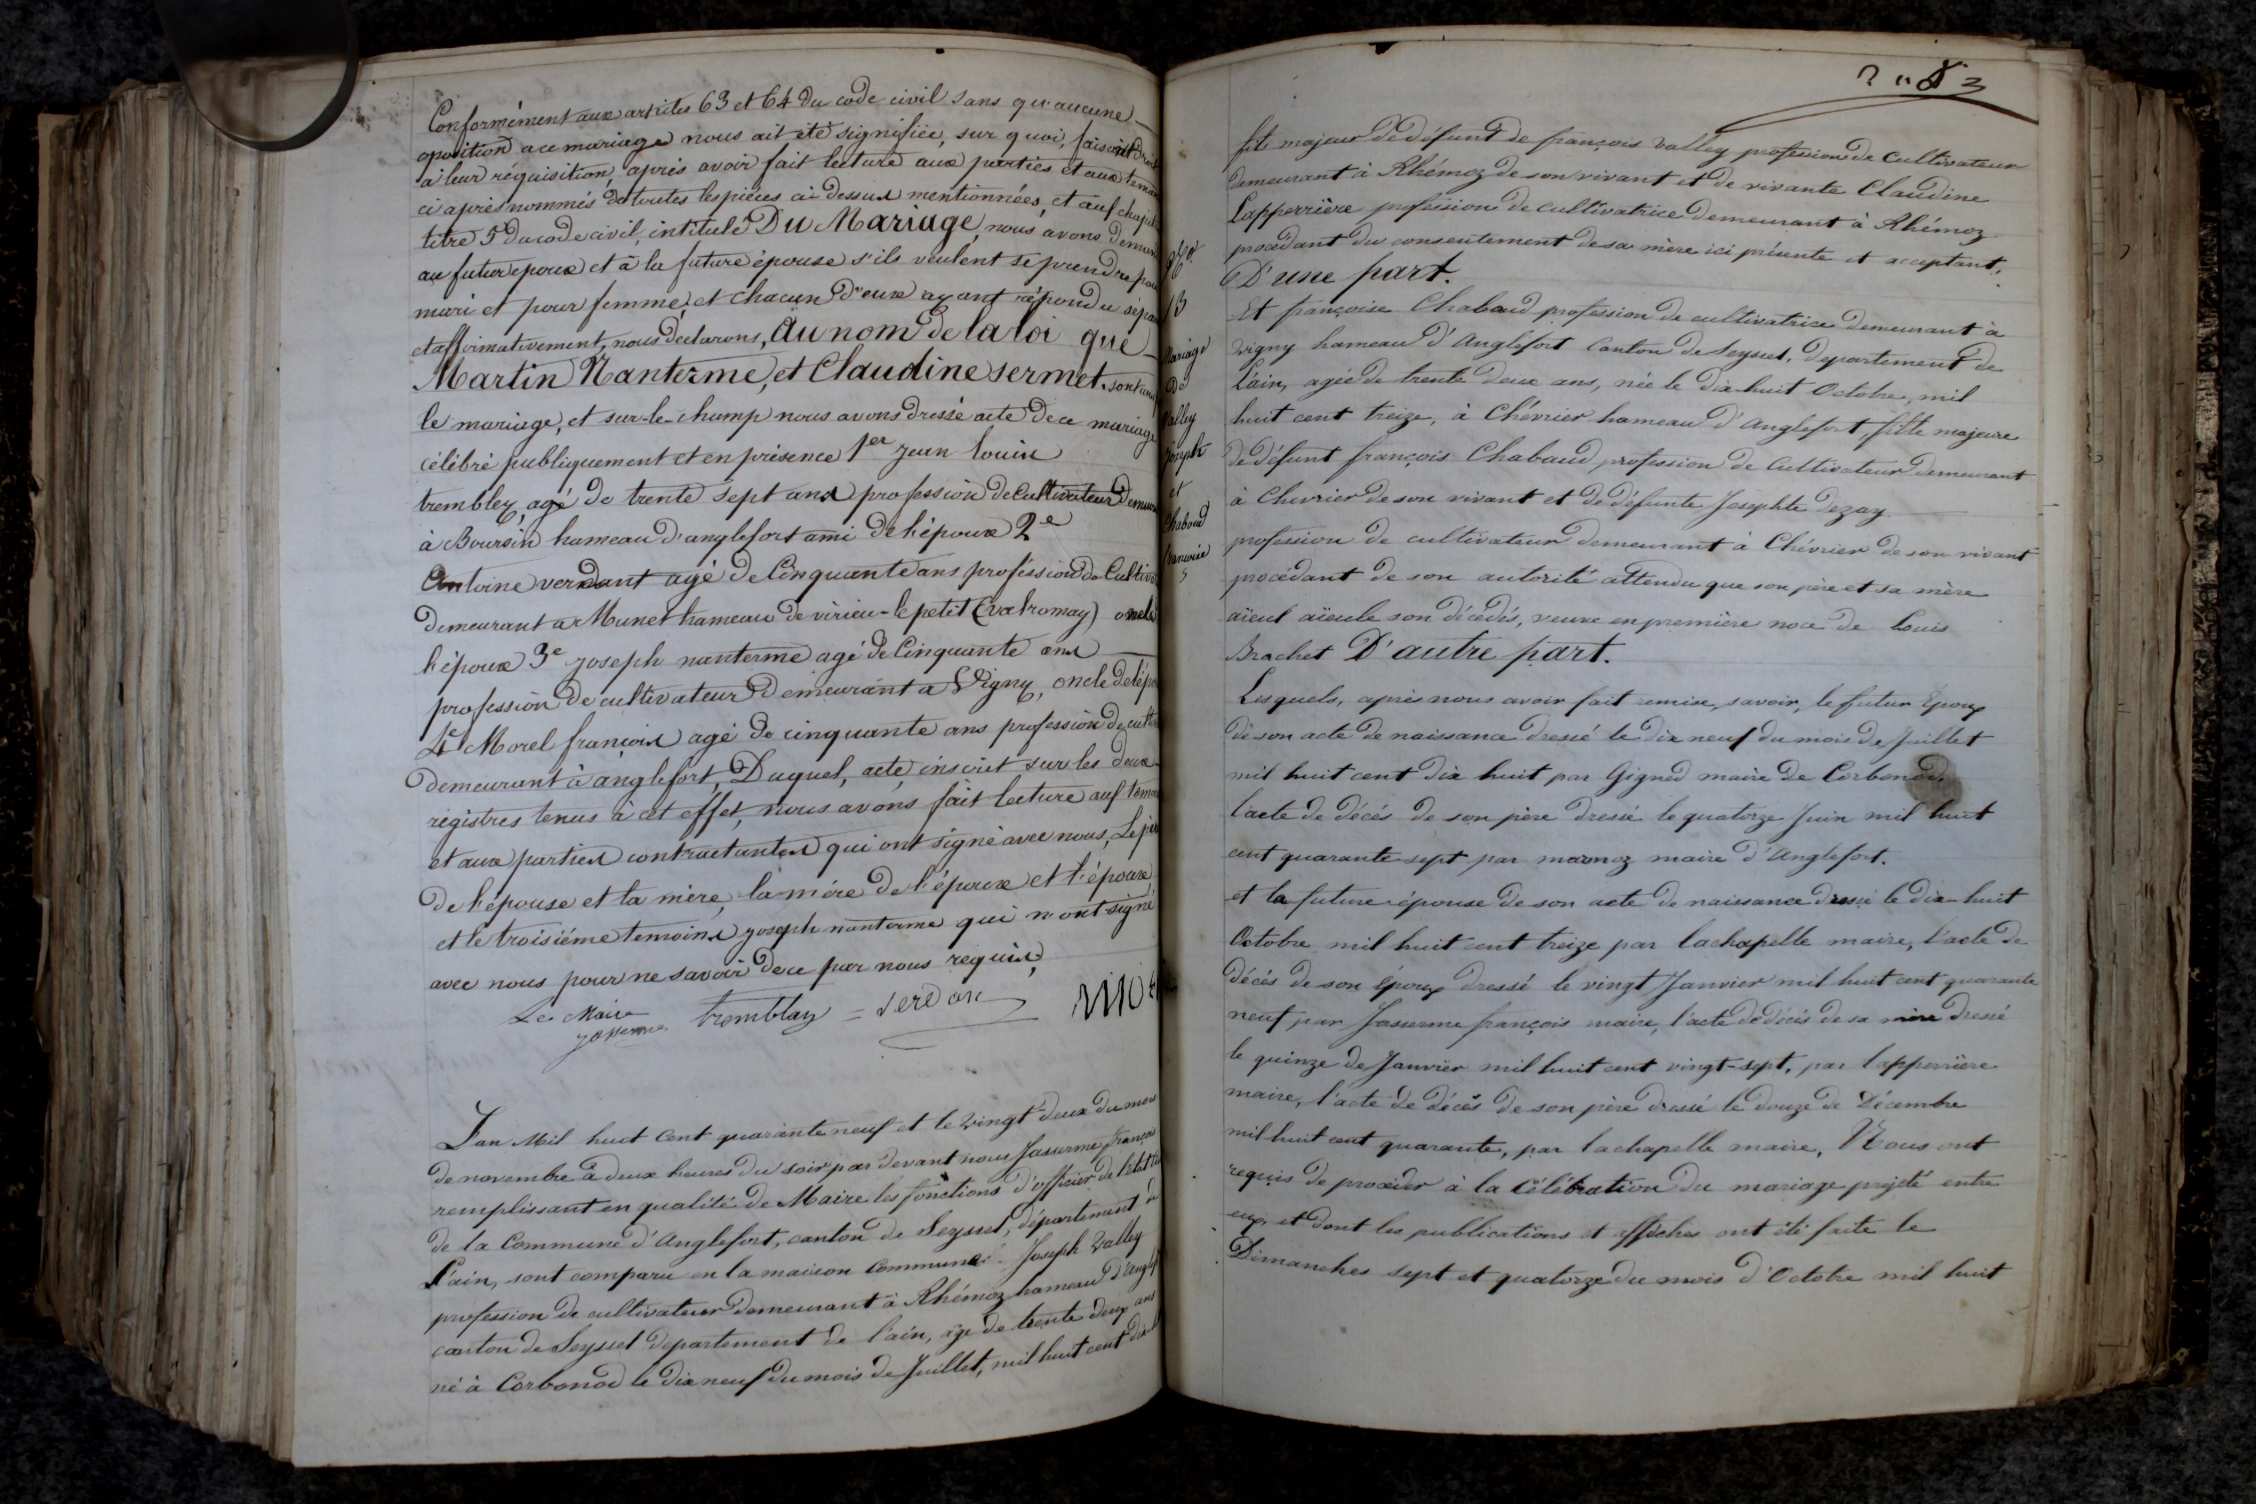 Conformément aux articles 63 et 64 du code civil sans qu'aucune
oposition a ce mariage nous ait été signifiée, sur quoi, faisant droit
à leur réquisition, après avoir fait lecture aux parties et aux temoin
ci après nommés de toutes les pièces ci-dessus mentionnées, et au chapitre
titre 5 du code civil, intitulé Du Mariage, nous avons demandé
au futur epoux et à la future épouse s'ils veulent se prendre pour
mari et pour femme, et chacun d'eux ayant répondu sépa
et affirmativement, nous déclarons, au nom de la loi que
Martin Nanterme, et Claudine sermet, sont unis
le mariage, et sur-le-champ nous avons dressé acte de ce mariage
célébré publiquement et en présence 1er jean louis
tremblez, agé de trente sept ans profession de Cultivateur demeurant
à Boursin hameau d'anglefort ami de l'époux 2e
Antoine verdant agé de Cinquante ans proféssion de Cultiv
demeurant a Munet hameau de virieu-le petit (valromay) oncle
l'époux 3e joseph nanterme agé de Cinquante ans
profession de cultivateur demeurant a Vigny, oncle de l'épo
4e Morel françois agé de cinquante ans profession de cult
demeurant à anglefort, Duquel, acte, inscrit sur les deux
régistres tenus à cet effet, nous avons fait lecture aux temoi
et aux parties contractantes qui ont signé avec nous, Le pè
de l'épouse et la mère, la mère de l'époux et l'épouse
et le troisiéme temoins joseph nanterme qui n'ont signé
avec nous pour ne savoir de ce par nous requis,
Le Maire tremblay = verdan
Jasserme
Lan Mil huit Cent quarante neuf et le vingt deux du mois
de novembre à deux heures du soir par devant nous Jasserme françois
remplissant en qualité de Maire les fonctions d'officier de l'état
de la Commune d'Anglefort, canton de Seyssel, département de
l'ain, sont comparu en la maison Commune. Joseph Valley
profession de cultivateur demeurant à Rhémoz hameau d'Anglef
canton de Seyssel departement de l'ain, âge de trente deux ans
né à Corbonod le dix neuf du mois de Juillet, mil huit cent dix
13
Mariage
De
Valley
Joseph
et
Chaboud
françoise
fils majeur de défunt de françois Valley profession de Cultivateur
demeurant à Rhémoz de son vivant et de vivante Claudine
Lapperrière profession de cultivatrice demeurant à Rhémoz
procédant du consentement de sa mère ici présente et acceptant,
D'une part.
Et françoise Chaboud profession de cultivatrice demeurant à
Vigny hameau d'Anglefort Canton de Seyssel, departement de
l'ain, agée de trente deux ans, née le dix huit Octobre, mil
huit cent treize, à Chévrier hameau d'Anglefort, fille majeure
de défunt françois Chaboud profession de Cultivateur demeurant
à Chevrier de son vivant et de défunte Josephte dezay
profession de cultivateur demeurant à Chévrier de son vivant
procédant de son autorité attendu que son père et sa mère
aïeul aïeule son décédés, veuve en première noce de Louis
Brachet D'autre part.
Lesquels, après nous avoir fait remise, savoir, le futur Époux
de son acte de naissance dressé le dix neuf du mois de Juillet
mil huit cent dix huit par Gignod maire de Corbonod,
l'acte de décès de son père dressé le quatorze Juin mil huit
cent quarante sept par marmoz maire d'Anglefort.
et la future épouse de son acte de naissance dressé le dix huit
Octobre mil huit cent treize par lachapelle maire, l'acte de
décès de son Époux dressé le vingt Janvier mil huit cent quarante
neuf par Jasserme françois maire, l'acte de décès de sa mère dressé
le quinze de Janvier mil huit cent vingt-sept, par lapperrière
maire, l'acte de décès de son père dressé le douze de Décembre
mil huit cent quarante, par lachapelle maire, Nous ont
requis de procéder à la Célébration du mariage projeté entre
eux et dont les publications et affiches ont été faite le
Dimanches sept et quatorze du mois d'Octobre mil huit